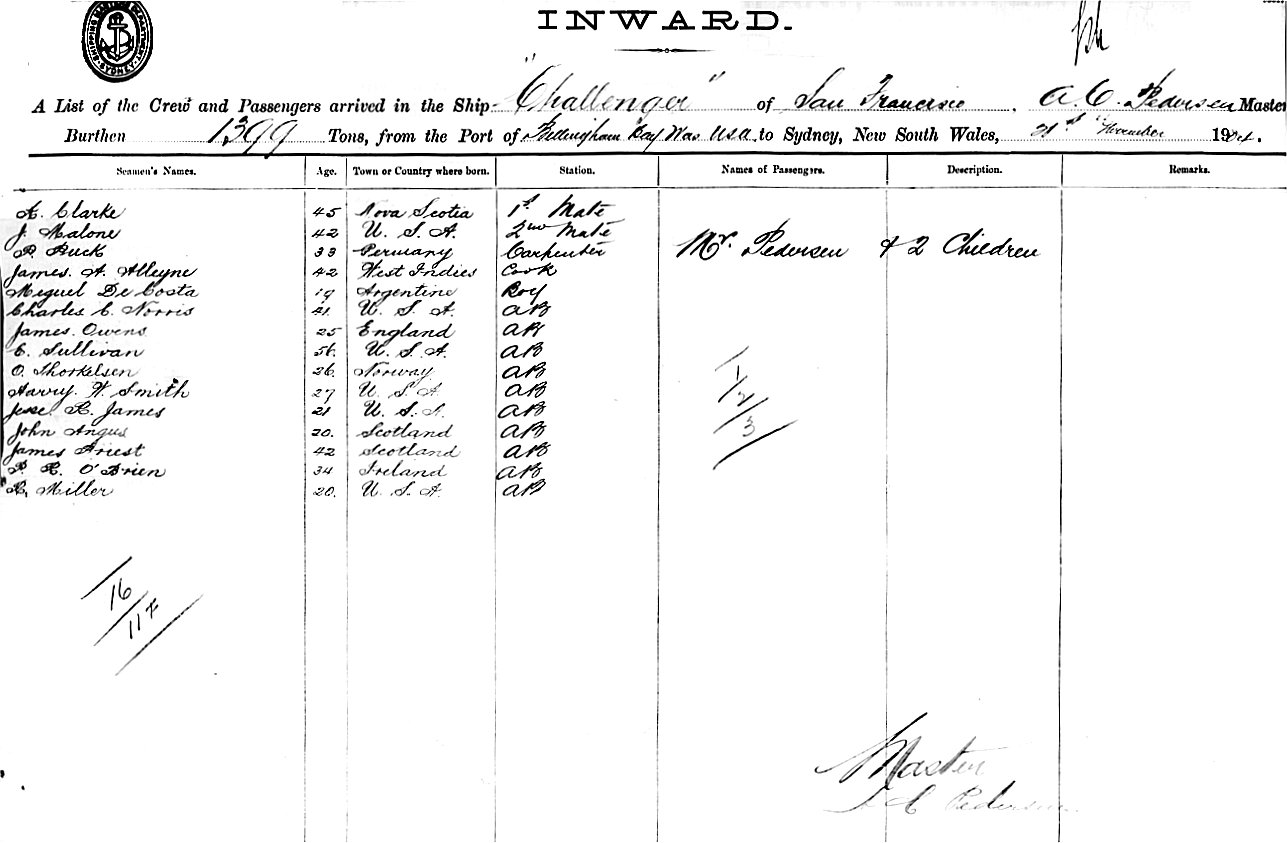 SHIPPING MASTERS DEPARTMENT SYDNEY
INWARD.
A List of the Crew and Passengers arrived in the Ship "Challenger" of San Francisco. A. C. Pedersen Master
Burthen 1399 Tons, from the Port of Bellingham Bay Was U.S.A. to Sydney, New South Wales, 21st November 1904.
Seamen's Names. Age. Town or Country where born. Station. Names of Passengers. Description. Remarks.
A. Clarke 45 Nova Scotia 1st Mate
J. Malone 42 U. S. A. 2nd Mate
P. Buck 33 Germany Carpenter Mrs. Pedersen & 2 Children
James. A. Alleyne 42 West Indies Cook
Miguel De Costa 19 Argentine Boy
Charles C. Norris 41. U. S. A. AB
James. Owens 25 England AB
C. Sullivan 56. U. S. A. AB
O. Thorkelsen 26. Norway AB
Harry. W. Smith 27 U. S. A AB
Jesse R. James 21 U. S. A. AB
John Angus 20. Scotland AB
James Friest 42 Scotland AB
P. R. O'Brien 34 Ireland AB
R. Miller 20. U. S. A. AB
1
2
3
16
117
Master
A C Pedersen